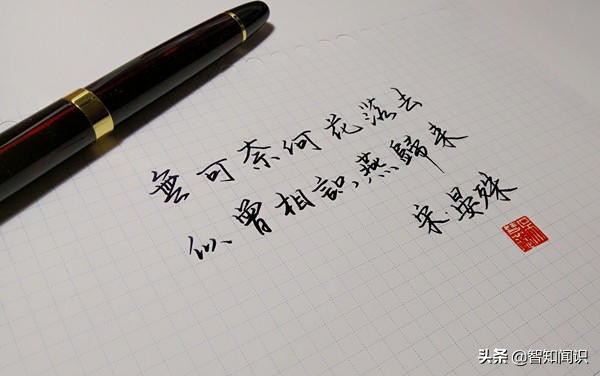 無可奈何花落去
似曾相識燕歸来
宋·晏殊
头条 @智知闻识